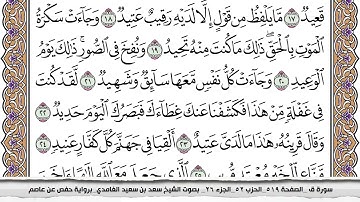 قَعِيدٌ ١٧ مَّا يَلْفِظُ مِن قَوْلٍ إِلَّا لَدَيْهِ رَقِيبٌ عَتِيدٌ ١٨ وَجَآءَتْ سَكْرَةُ
ٱلْمَوْتِ بِٱلْحَقِّ ذَٰلِكَ مَا كُنتَ مِنْهُ تَحِيدُ ١٩ وَنُفِخَ فِى ٱلصُّورِ ذَٰلِكَ يَوْمُ
ٱلْوَعِيدِ ٢٠ وَجَآءَتْ كُلُّ نَفْسٍ مَّعَهَا سَآئِقٌ وَشَهِيدٌ ٢١ لَّقَدْ كُنتَ
فِى غَفْلَةٍ مِّنْ هَٰذَا فَكَشَفْنَا عَنكَ غِطَآءَكَ فَبَصَرُكَ ٱلْيَوْمَ حَدِيدٌ ٢٢
وَقَالَ قَرِينُهُۥ هَٰذَا مَا لَدَىَّ عَتِيدٌ ٢٣ أَلْقِيَا فِى جَهَنَّمَ كُلَّ كَفَّارٍ عَنِيدٍ ٢٤
سورة ق. الصفحة ٥١٩. الحزب ٥٢. الجزء ٢٦. بصوت الشيخ سعد بن سعيد الغامدي. برواية حفص عن عاصم